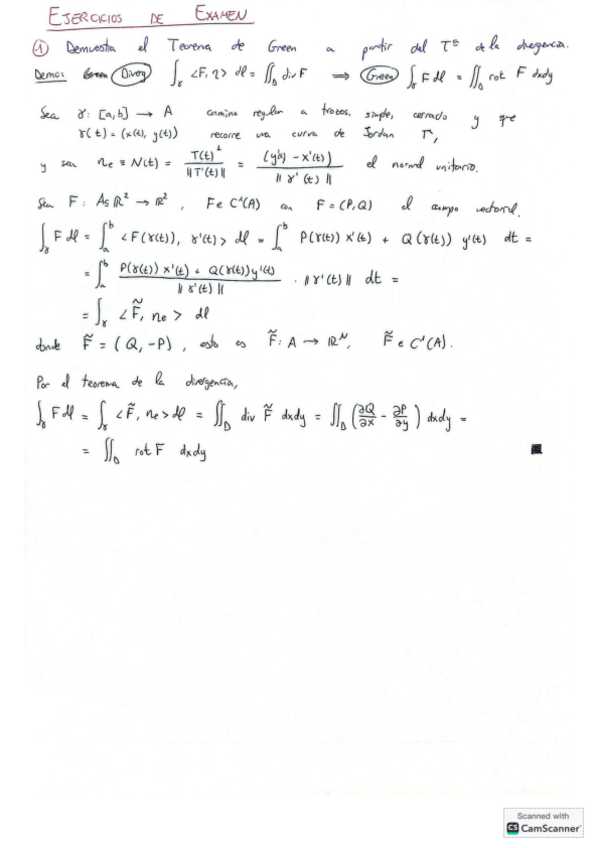 EJERCICIOS DE EXAMEN
① Demuestra el Teorema de Green a partir del Tª de la divergencia.
Demo: Green (Diverg) ∫_γ <F, η> dl = ∬_D div F ⟹ (Green) ∫_γ F dl = ∬_D rot F dxdy
Sea γ: [a,b] → A camino regular a trozos, simple, cerrado y que
γ(t) = (x(t), y(t)) recorre una curva de Jordan Γ,
y sea ηe ≡ N(t) = T(t)^⊥ / ||T'(t)|| = (y'(t) - x'(t)) / ||γ'(t)|| el normal unitario.
Sea F: A⊆ℝ² → ℝ², F∈C¹(A) con F = (P,Q) el campo vectorial.
∫_γ F dl = ∫_a^b <F(γ(t)), γ'(t)> dl = ∫_a^b P(γ(t)) x'(t) + Q(γ(t)) y'(t) dt =
= ∫_a^b (P(γ(t)) x'(t) + Q(γ(t)) y'(t)) / ||γ'(t)|| · ||γ'(t)|| dt =
= ∫_γ <F̃, ηe> dl
donde F̃ = (Q, -P), esto es F̃: A → ℝᴺ, F̃ ∈ C¹(A).
Por el teorema de la divergencia,
∫_γ F dl = ∫_γ <F̃, ηe> dl = ∬_D div F̃ dxdy = ∬_D (∂Q/∂x - ∂P/∂y) dxdy =
= ∬_D rot F dxdy
Scanned with
CS CamScanner